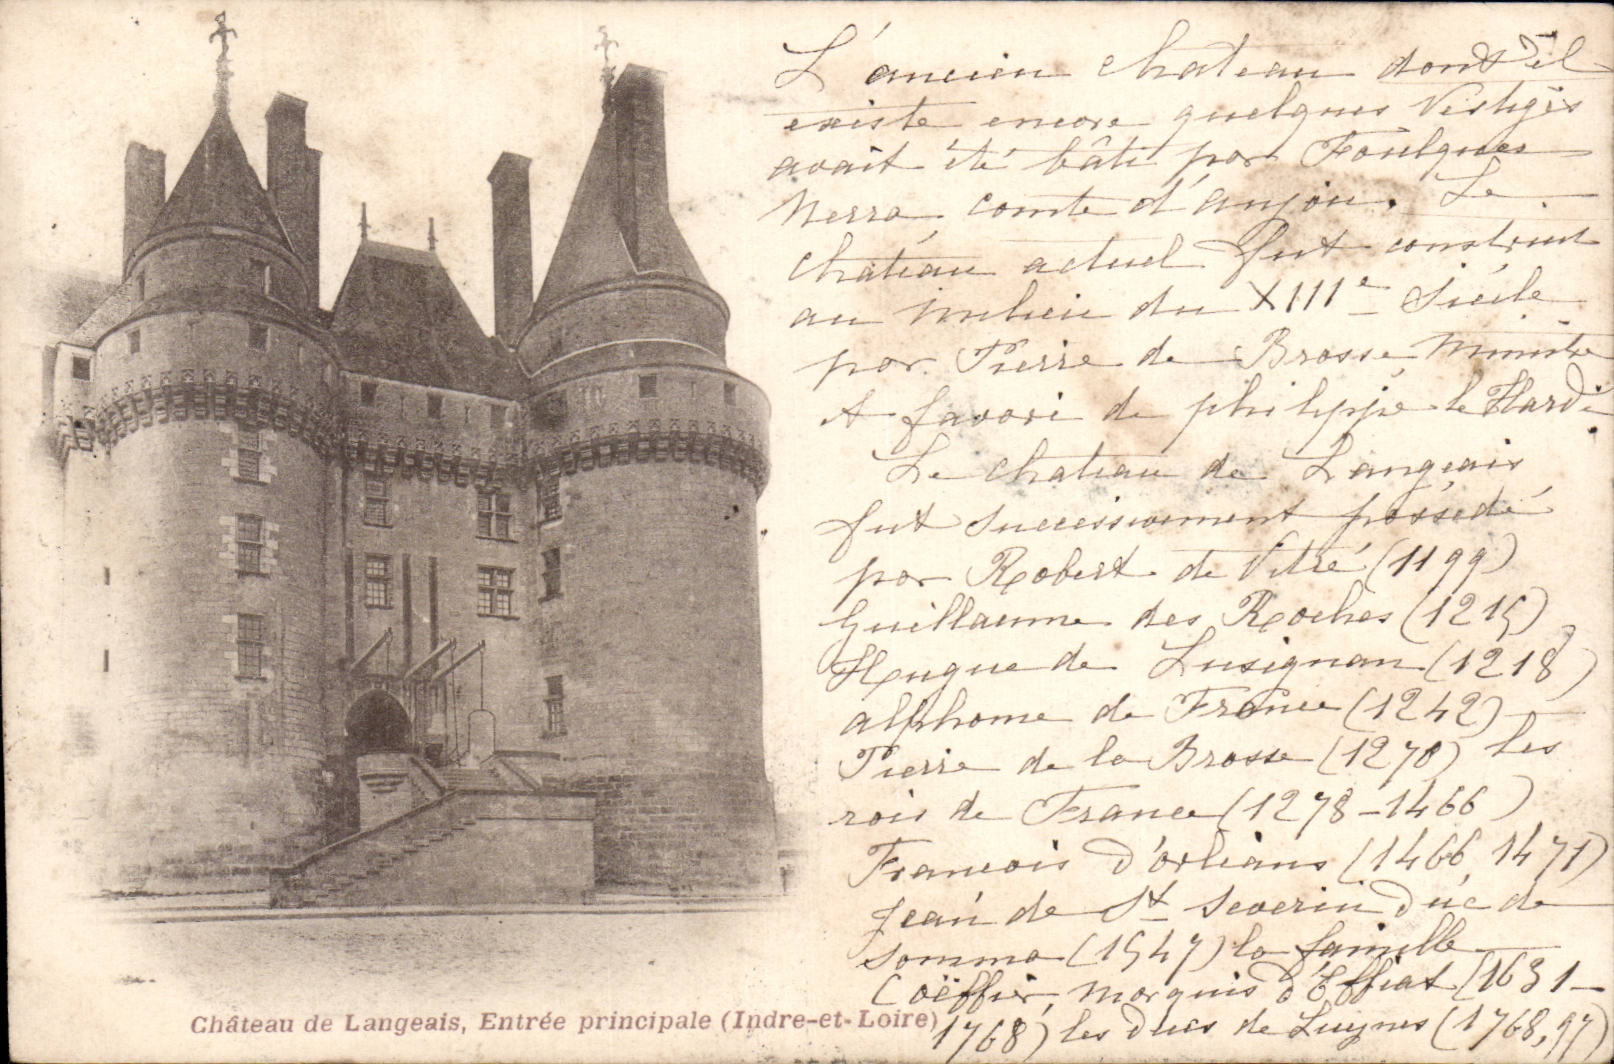 L'ancien chateau dont il
existe encore quelques vestiges
avait été bâti par Foulques
Nerra, comte d'anjou. Le
chateau actuel fut construit
au milieu du XIIIe Siècle
par Pierre de Brosse, Ministre
et favori de philippe le Hardi
Le chateau de Langeais
fut successivement possédé
par Robert de Vitré (1199)
Guillaume des Roches (1215)
Hugue de Lusignan (1218)
alphonse de France (1242)
Pierre de la Brosse (1270) les
rois de France (1278-1466)
Francois d'orléans (1466, 1471)
Jean de St Severin Duc de
somma (1547) la famille
Coëffier, marquis d'Effiat (1631-
1768) les ducs de Luynes (1768, 97)
Château de Langeais, Entrée principale (Indre-et-Loire)